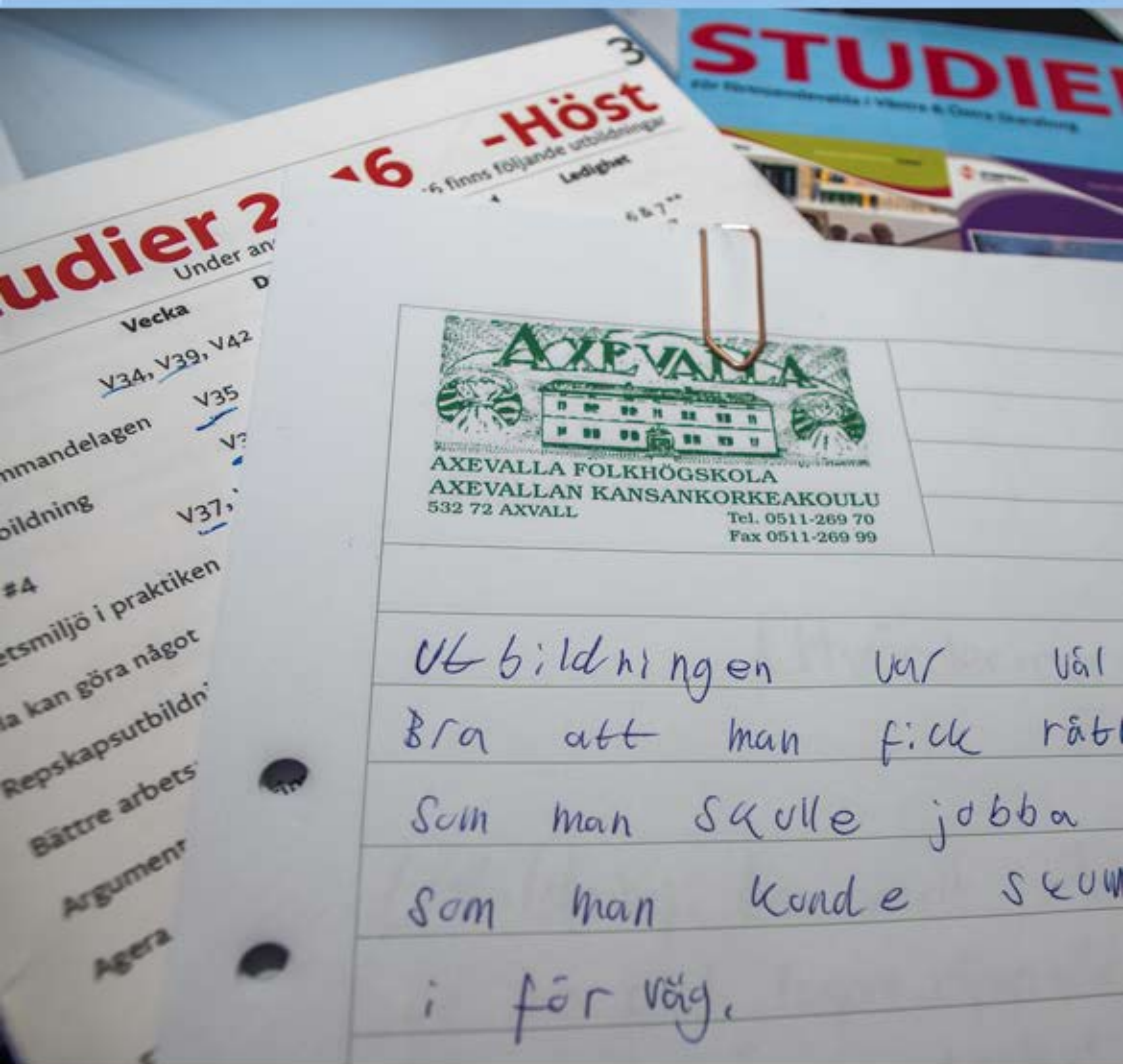 3
STUDIER
För förtroendevalda i Västra & Östra Skaraborg
udier 2 16 -Höst
Under an
16 finns följande utbildningar
Vecka D
Ledighet
6 & 7 **
V34, V39, V42
mmandelagen V35
bildning V3
#4 V37,
etsmiljö i praktiken
la kan göra något
Repskapsutbildni
Bättre arbets
Argument
Agera
AXEVALLA
AXEVALLA FOLKHÖGSKOLA
AXEVALLAN KANSANKORKEAKOULU
532 72 AXVALL Tel. 0511-269 70
Fax 0511-269 99
Utbildningen var väl
Bra att man fick rätt
Som man skulle jobba
Som man kunde skum
i för väg.